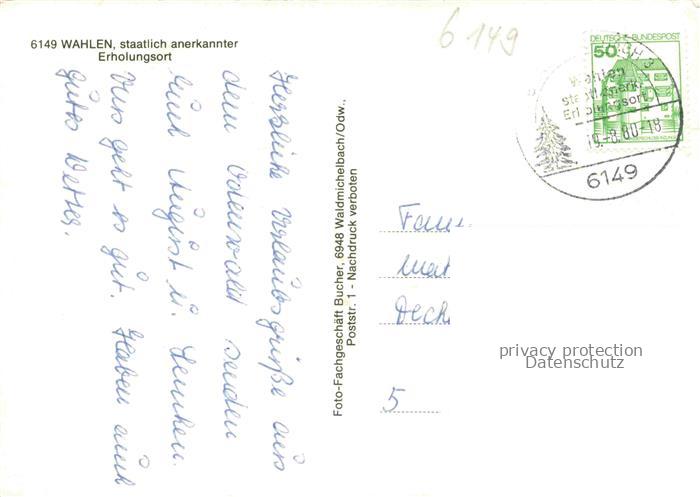 6149
6149 WAHLEN, staatlich anerkannter
Erholungsort
DEUTSCHE BUNDESPOST
50
Wahlen
staatl. anerk.
Erholungsort
19.-8.80-18
6149
Herzliche Urlaubsgrüße aus
dem Odenwald senden
Euch August u. Lenchen.
Uns geht es gut. Haben auch
gutes Wetter.
Foto-Fachgeschäft Bucher, 6948 Waldmichelbach/Odw.,
Poststr. 1 - Nachdruck verboten
Fam
Dech
5
privacy protection
Datenschutz